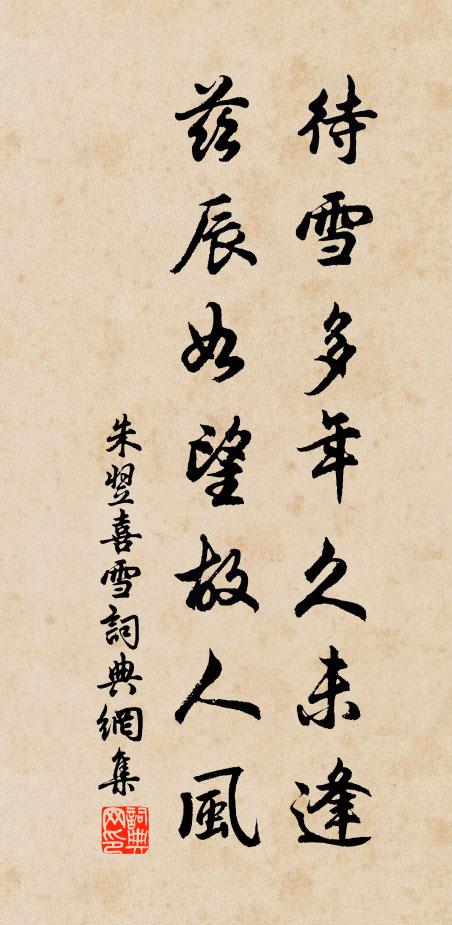 待雪多年久未逢
兹辰如望故人風
朱翌喜雪詞典網集
詞典网印